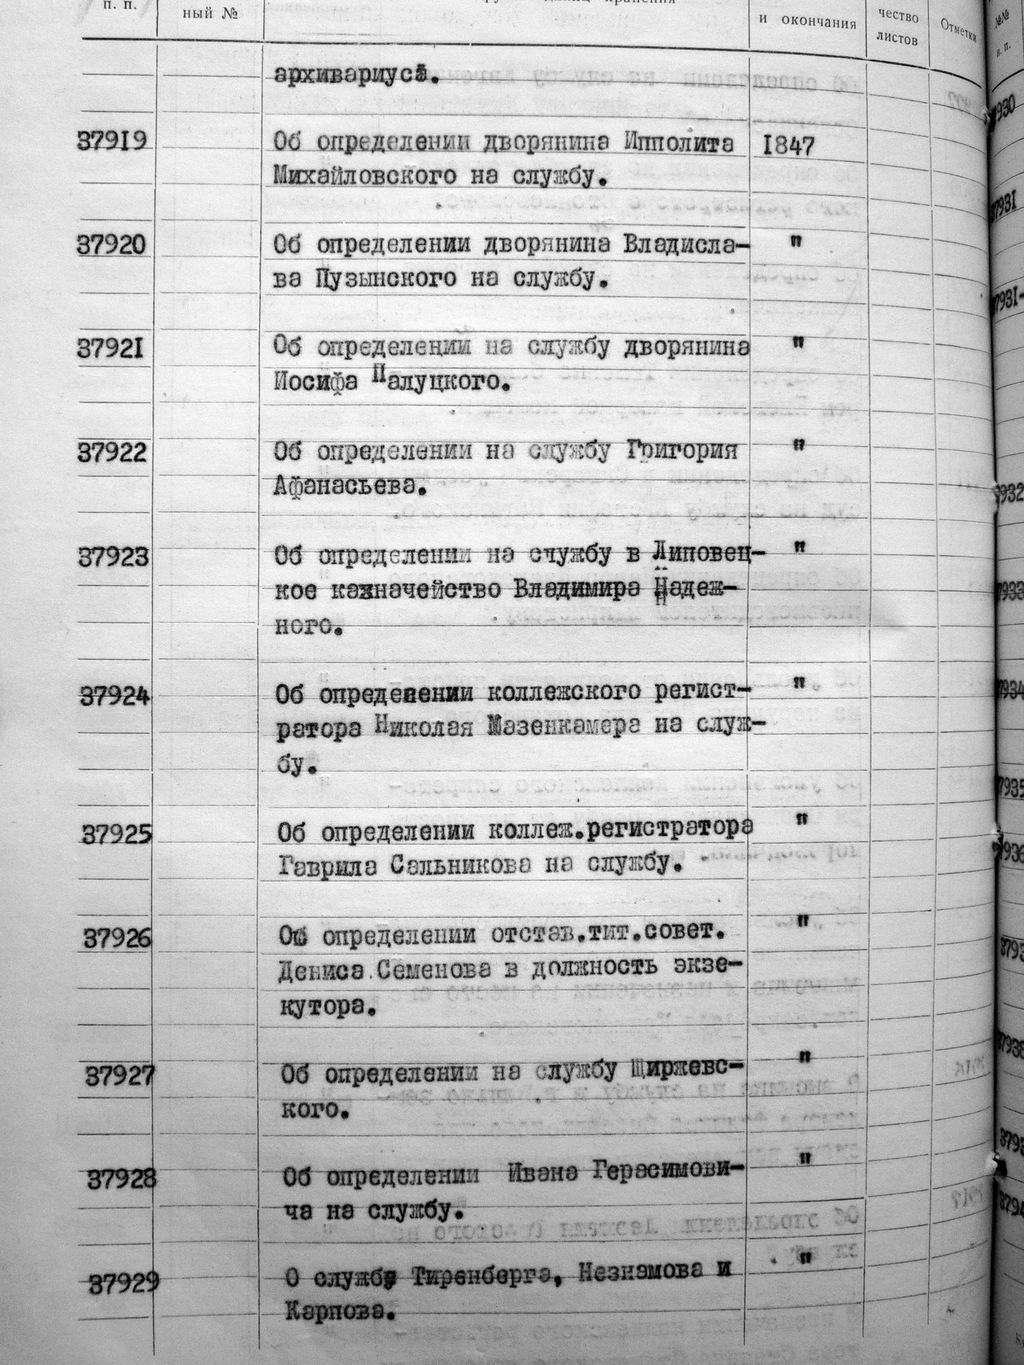 п. п.
ный №
и окончания
чество
листов
Отметки
архивариуса.
37919 Об определении дворянина Ипполита 1847
Михайловского на службу.
37920 Об определении дворянина Владисла- "
ва Пузынского на службу.
37921 Об определении на службу дворянина "
Иосифа Палуцкого.
37922 Об определении на службу Григория "
Афанасьева.
37923 Об определении на счужбу в Липовец- "
кое казначейство Владимира Надеж-
ного.
37924 Об определении коллежского регист- "
ратора Николая Мазенкамера на служ-
бу.
37925 Об определении коллеж.регистратора "
Гаврила Сальникова на службу.
37926 Об определении отстав.тит.совет. "
Дениса Семенова в должность экзе-
кутора.
37927 Об определении на службу Щиржевс- "
кого.
37928 Об определении Ивана Герасимови- "
ча на службу.
37929 О службе Тиренберга, Незнамова и "
Карпова.